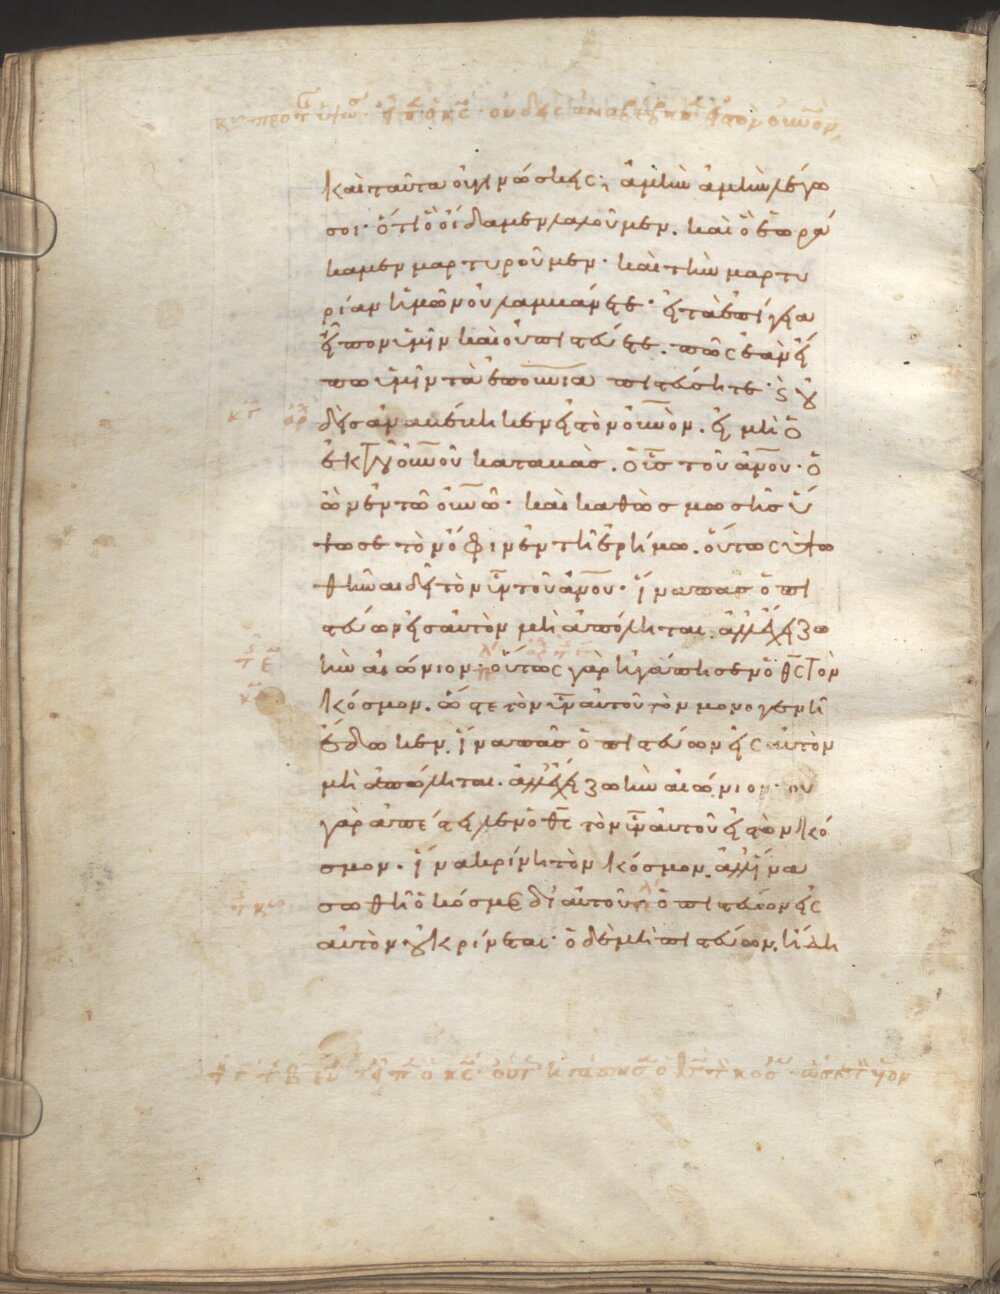 κυ προ τ υψω εἶπ ὁ κς οὐδεὶς ἀναβέβηκεν εἰς τὸν οὐνον
καὶ ταῦτα οὐ γινώσκεις; ἀμὴν ἀμὴν λέγω
σοι· ὅτι ὃ οἴδαμεν λαλοῦμεν. καὶ ὃ ἑωρά
καμεν μαρτυροῦμεν· καὶ τὴν μαρτυ
ρίαν ἡμῶν οὐ λαμβάνετε· εἰ τὰ ἐπίγεια
εἶπον ὑμῖν καὶ οὐ πιστεύετε. πῶς ἐὰν εἴ
πω ὑμῖν τὰ ἐπουνια πιστεύσητε· καὶ οὐ
δεὶς ἀναβέβηκεν εἰς τὸν οὐνὸν. εἰ μὴ ὁ
ἐκ τοῦ οὐνοῦ καταβάς. ὁ υἱς τοῦ ἀνου· ὁ
ὢν ἐν τῶ οὐνῶ· καὶ καθὼς μωσῆς ὕ
ψωσε τὸν ὄφιν ἐν τῆ ἐρήμω. οὕτως ὑψω
θῆναι δεῖ τὸν υἱν τοῦ ἀνου· ἵνα πας ὁ πι
στεύων εἰς αὐτὸν μὴ ἀπόληται. ἀλλ' ἔχη ζω
ὴν αἰώνιον· οὕτως γὰρ ἠγάπησεν ὁ θς τὸν
κόσμον. ὥστε τὸν υἱν αὐτοῦ τὸν μονογενῆ
ἔδωκεν. ἵνα πᾶς ὁ πιστεύων εἰς αὐτὸν
μὴ ἀπόληται. ἀλλ' ἔχη ζωὴν αἰώνιον· οὐ
γὰρ ἀπέστειλεν ὁ θς τὸν υἱν αὐτοῦ εἰς τὸν κό
σμον. ἵνα κρίνη τὸν κόσμον. ἀλλ' ἵνα
σωθῆ ὁ κόσμος δι' αὐτοῦ· ὁ πιστεύων εἰς
αὐτὸν οὐ κρίνεται· ὁ δὲ μὴ πιστεύων. ἤδη